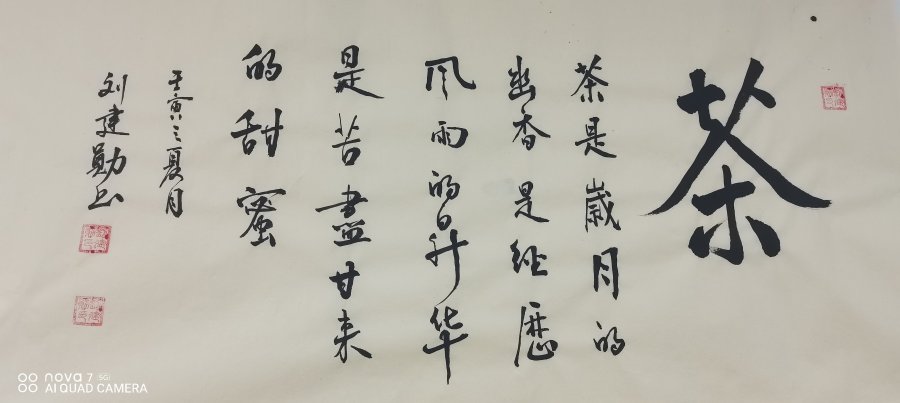 茶
茶是歲月的
幽香是經歷
风雨的昇华
是苦盡甘来
的甜蜜
壬寅之夏月
刘建勋书
nova 7 5G
AI QUAD CAMERA